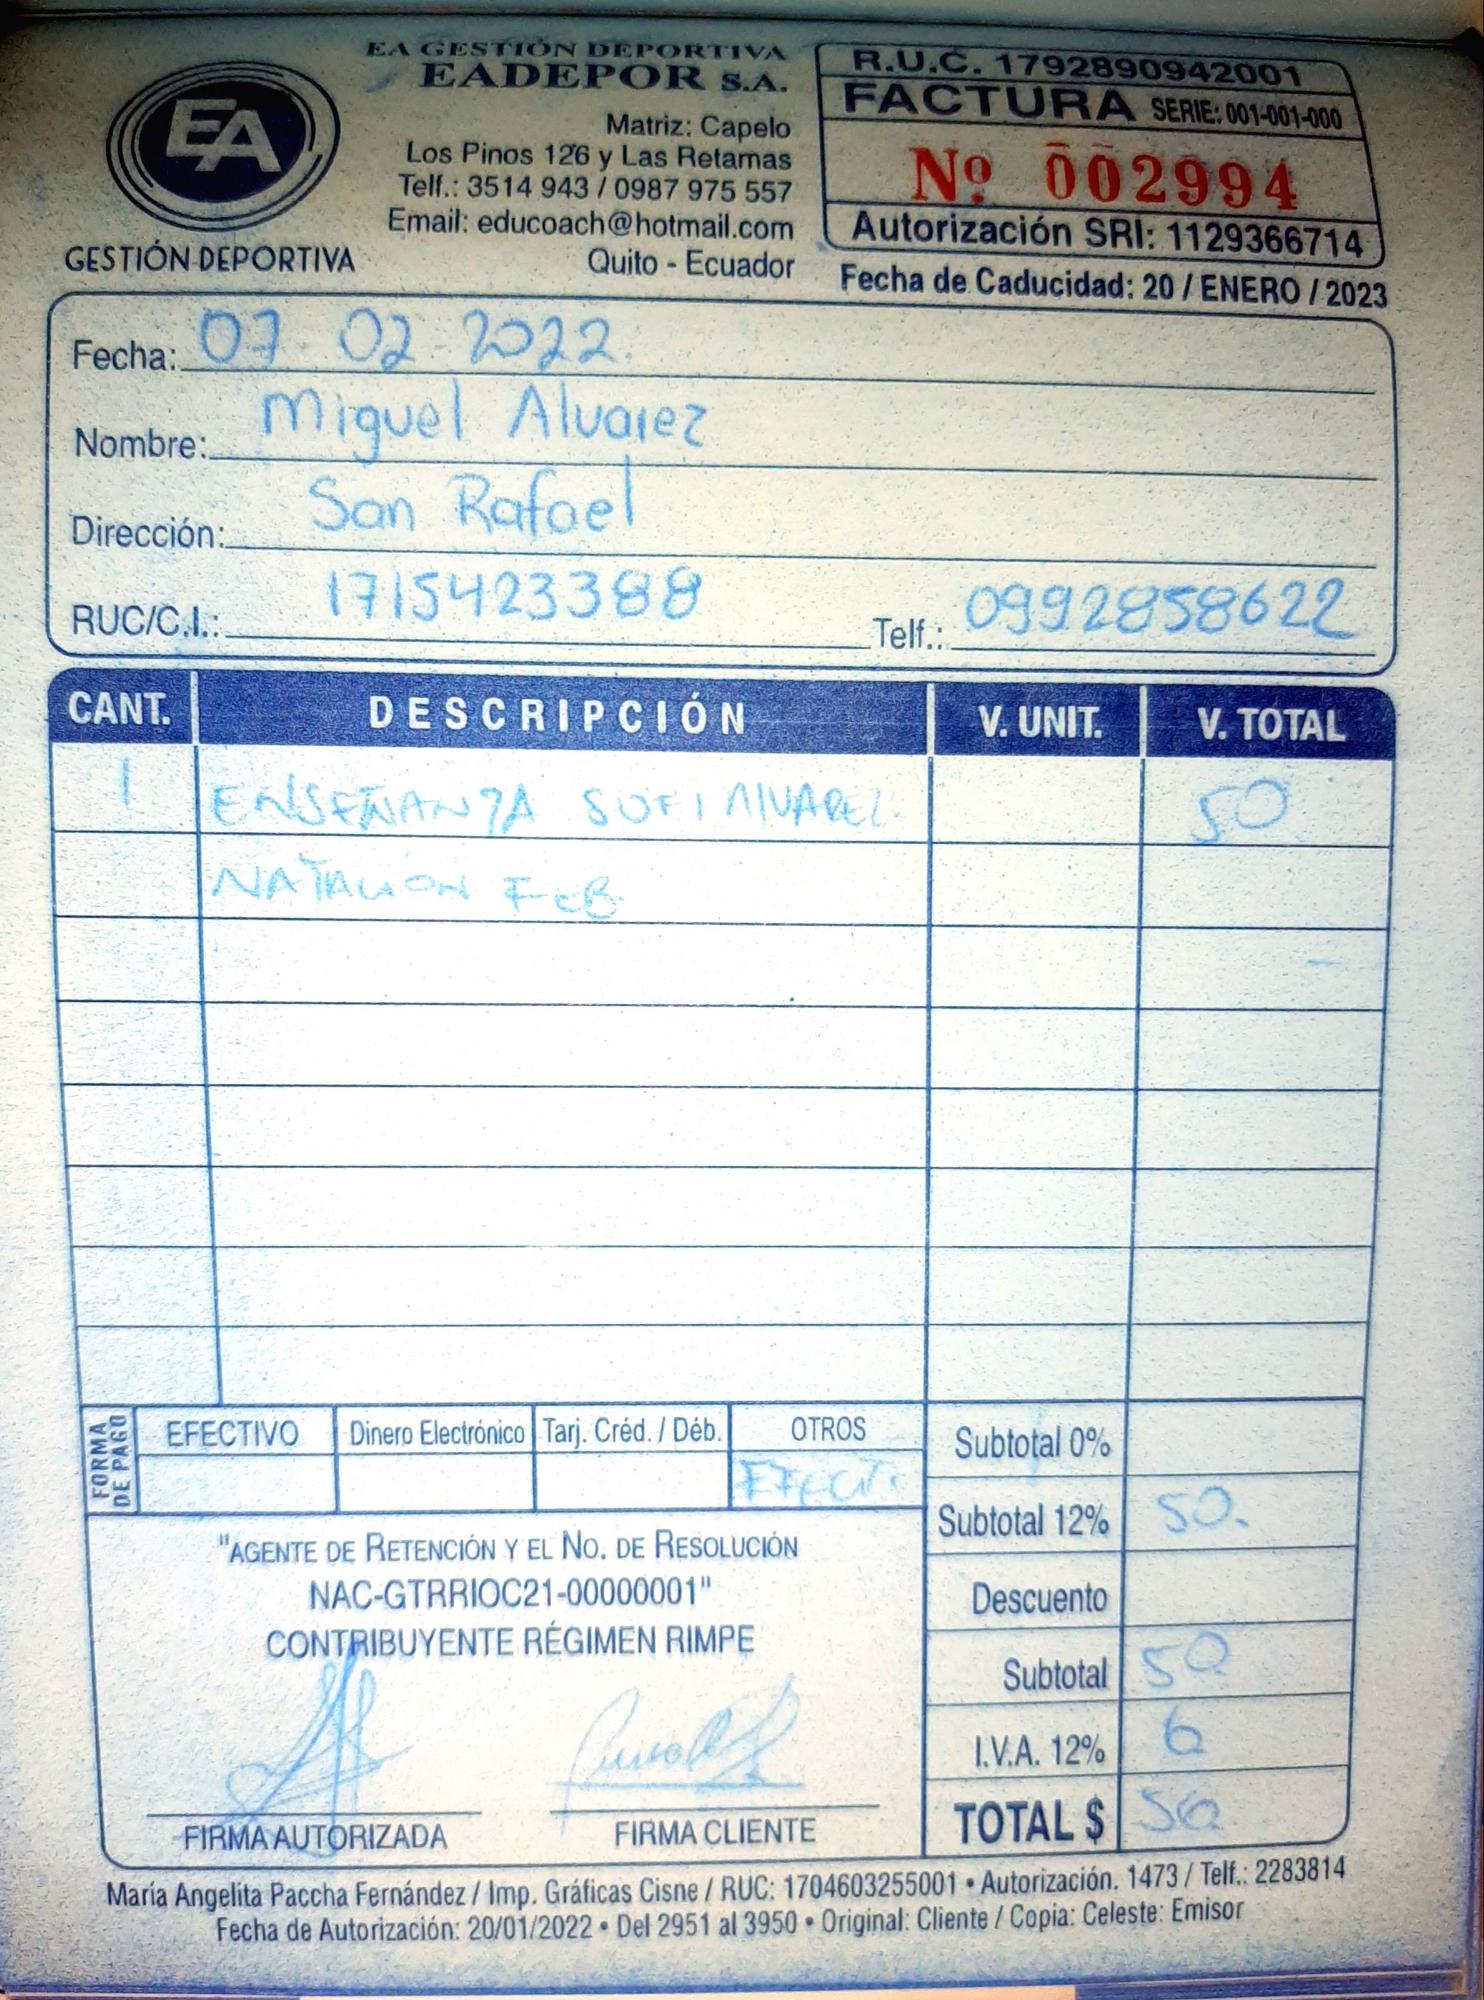 EA GESTIÓN DEPORTIVA
EADEPOR S.A.
EA
GESTIÓN DEPORTIVA
Matriz: Capelo
Los Pinos 126 y Las Retamas
Telf.: 3514 943 / 0987 975 557
Email: educoach@hotmail.com
Quito - Ecuador
R.U.C. 1792890942001
FACTURA SERIE: 001-001-000
Nº 002994
Autorización SRI: 1129366714
Fecha de Caducidad: 20 / ENERO / 2023
Fecha: 07 02-2022
Nombre: Miguel Alvarez
Dirección: San Rafael
RUC/C.I.: 1715423388 Telf.: 0992858622
CANT. DESCRIPCIÓN V. UNIT. V. TOTAL
1 ENSEÑANZA SOFI ALVAREZ 50
NATACION FEB
FORMA DE PAGO
EFECTIVO Dinero Electrónico Tarj. Créd. / Déb. OTROS
EFECT.
Subtotal 0%
Subtotal 12% 50.
Descuento
Subtotal 50
I.V.A. 12% 6
TOTAL $ 56
"AGENTE DE RETENCIÓN Y EL NO. DE RESOLUCIÓN
NAC-GTRRIOC21-00000001"
CONTRIBUYENTE RÉGIMEN RIMPE
FIRMA AUTORIZADA FIRMA CLIENTE
María Angelita Paccha Fernández / Imp. Gráficas Cisne / RUC: 1704603255001 • Autorización. 1473 / Telf.: 2283814
Fecha de Autorización: 20/01/2022 • Del 2951 al 3950 • Original: Cliente / Copia: Celeste: Emisor